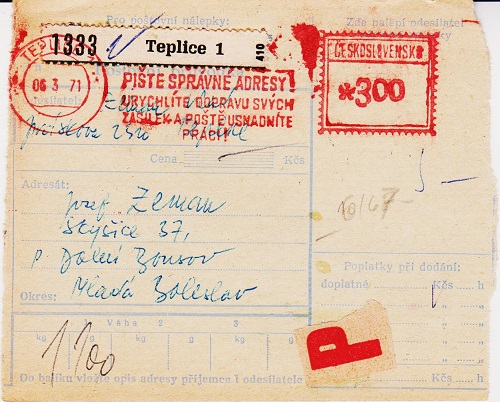 Pro poštovní nálepky:
Zde nalepí odesílatel
1333
Teplice 1
410
TEPLICE
06 3 71
PIŠTE SPRÁVNÉ ADRESY!
URYCHLÍTE DOPRAVU SVÝCH
ZÁSILEK A POŠTĚ USNADNÍTE
PRÁCI!
ČESKOSLOVENSKO
*300
Cena
Kčs
5 –
Adresát:
Josef Zeman
37,
p. Dolní Bousov
Okres: Mladá Boleslav
Poplatky při dodání:
doplatné Kčs h
Kčs h
Kčs h
1 Váha 2 3
kg g kg g kg g
P
Do balíku vložte opis adresy příjemce i odesílatele